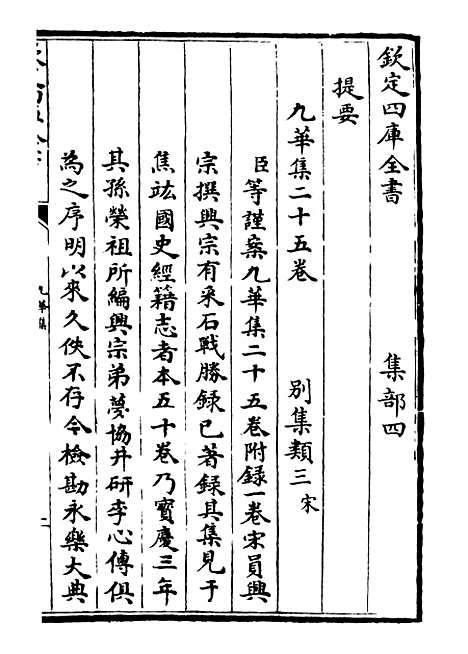 欽定四庫全書 集部四
提要
九華集二十五卷 別集類三 宋
臣等謹案九華集二十五卷附録一卷宋員興
宗撰興宗有采石戰勝録已著録其集見于
焦竑國史經籍志者本五十卷乃寳慶三年
其孫榮祖所編興宗弟夢協井研李心傳俱
為之序明以來久佚不存今檢勘永樂大典
九華集